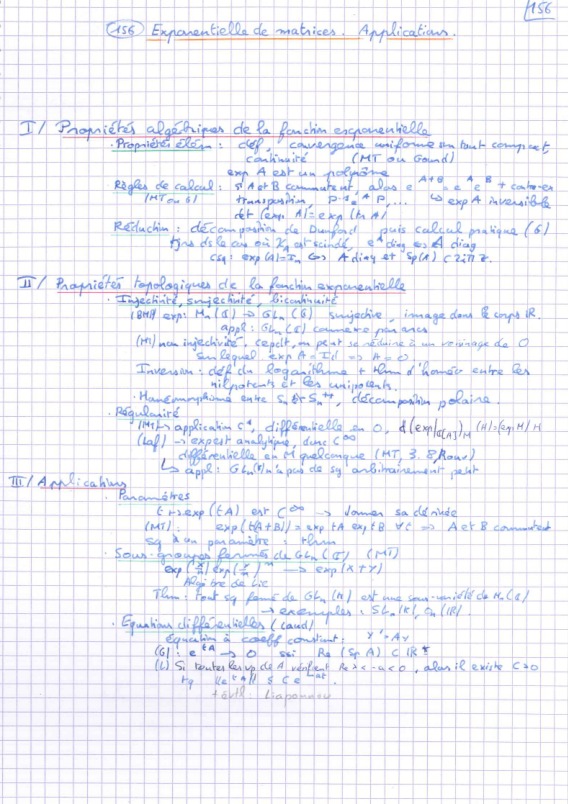 156
156 Exponentielle de matrices. Applications.
I/ Propriétés algébriques de la fonction exponentielle
· Propriétés élém : déf, convergence uniforme sur tout compact,
continuité (MT ou Gourd)
exp A est un polynôme
Règles de calcul : si A et B commutent, alors e^{A+B} = e^A e^B + contre-ex
(MT ou G) transposition, P^{-1} e^A P, ... ↳ exp A inversible
dét (exp A) = exp (tr A)
Réduction : décomposition de Dunford, puis calcul pratique (G)
tjrs ds le cas où χ_A est scindé, e^A diag ⟺ A diag
csq : exp(A) = I_n ⟺ A diag et Sp(A) ⊂ 2iπℤ.
II/ Propriétés topologiques de la fonction exponentielle
· Injectivité, surjectivité, bicontinuité
exp : M_n(ℂ) → GL_n(ℂ) surjective, image dans le corps ℝ.
appl : GL_n(ℂ) connexe par arcs
(MT) non injectivité, cepdt, on peut se réduire à un voisinage de 0
sur lequel exp A = Id ⟹ A = 0.
Inversion : déf du logarithme + thm d'homéo entre les
nilpotents et les unipotents.
· Homéomorphisme entre S_n et S_n^{++}, décomposition polaire.
· Régularité
(MT) → application C^1, différentielle en 0,
(Laf) → exp est analytique, donc C^∞
différentielle en M quelconque (MT, 3.8, Rouv)
↳ appl : GL_n(ℝ) n'a pas de sg arbitrairement petit
III/ Applications
· Paramètres
t ↦ exp(tA) est C^∞ → donner sa dérivée
(MT) : exp(t(A+B)) = exp tA exp tB ∀t ⟹ A et B commutent
sg à un paramètre : thm
· Sous-groupes fermés de GL_n(ℂ) (MT)
→ exp(X+Y)
Algèbre de Lie
Thm : tout sg fermé de GL_n(ℝ) est une sous-variété de M_n(ℝ)
→ exemples : SL_n(ℝ), O_n(ℝ)
· Equations différentielles
équation à coeff constant : Y' = AY
(G) : e^{tA} → 0 ssi Re (Sp A) ⊂ ℝ^{*}
(L) Si toutes les vp de A vérifient Re λ < -a < 0, alors il existe C > 0
tq ||e^{tA}|| ≤ C e^{-at}.
Liapounov